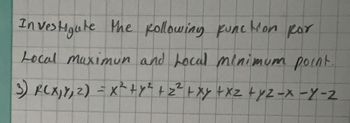 Investigate the following function for
Local maximum and Local minimum point.
3) f(x,y,z) = x² + y² + z² + xy + xz + yz - x - y - z